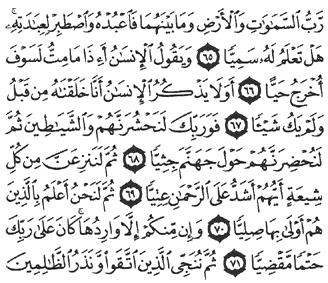 رَّبُّ السَّمَٰوَٰتِ وَالْأَرْضِ وَمَا بَيْنَهُمَا فَاعْبُدْهُ وَاصْطَبِرْ لِعِبَٰدَتِهِۦۚ
هَلْ تَعْلَمُ لَهُۥ سَمِيًّا ٦٥ وَيَقُولُ الْإِنسَٰنُ أَءِذَا مَا مِتُّ لَسَوْفَ
أُخْرَجُ حَيًّا ٦٦ أَوَلَا يَذْكُرُ الْإِنسَٰنُ أَنَّا خَلَقْنَٰهُ مِن قَبْلُ
وَلَمْ يَكُ شَيْـًٔا ٦٧ فَوَرَبِّكَ لَنَحْشُرَنَّهُمْ وَالشَّيَٰطِينَ ثُمَّ
لَنُحْضِرَنَّهُمْ حَوْلَ جَهَنَّمَ جِثِيًّا ٦٨ ثُمَّ لَنَنزِعَنَّ مِن كُلِّ
شِيعَةٍ أَيُّهُمْ أَشَدُّ عَلَى الرَّحْمَٰنِ عِتِيًّا ٦٩ ثُمَّ لَنَحْنُ أَعْلَمُ بِالَّذِينَ
هُمْ أَوْلَىٰ بِهَا صِلِيًّا ٧٠ وَإِن مِّنكُمْ إِلَّا وَارِدُهَاۚ كَانَ عَلَىٰ رَبِّكَ
حَتْمًا مَّقْضِيًّا ٧١ ثُمَّ نُنَجِّي الَّذِينَ اتَّقَوا وَّنَذَرُ الظَّٰلِمِينَ